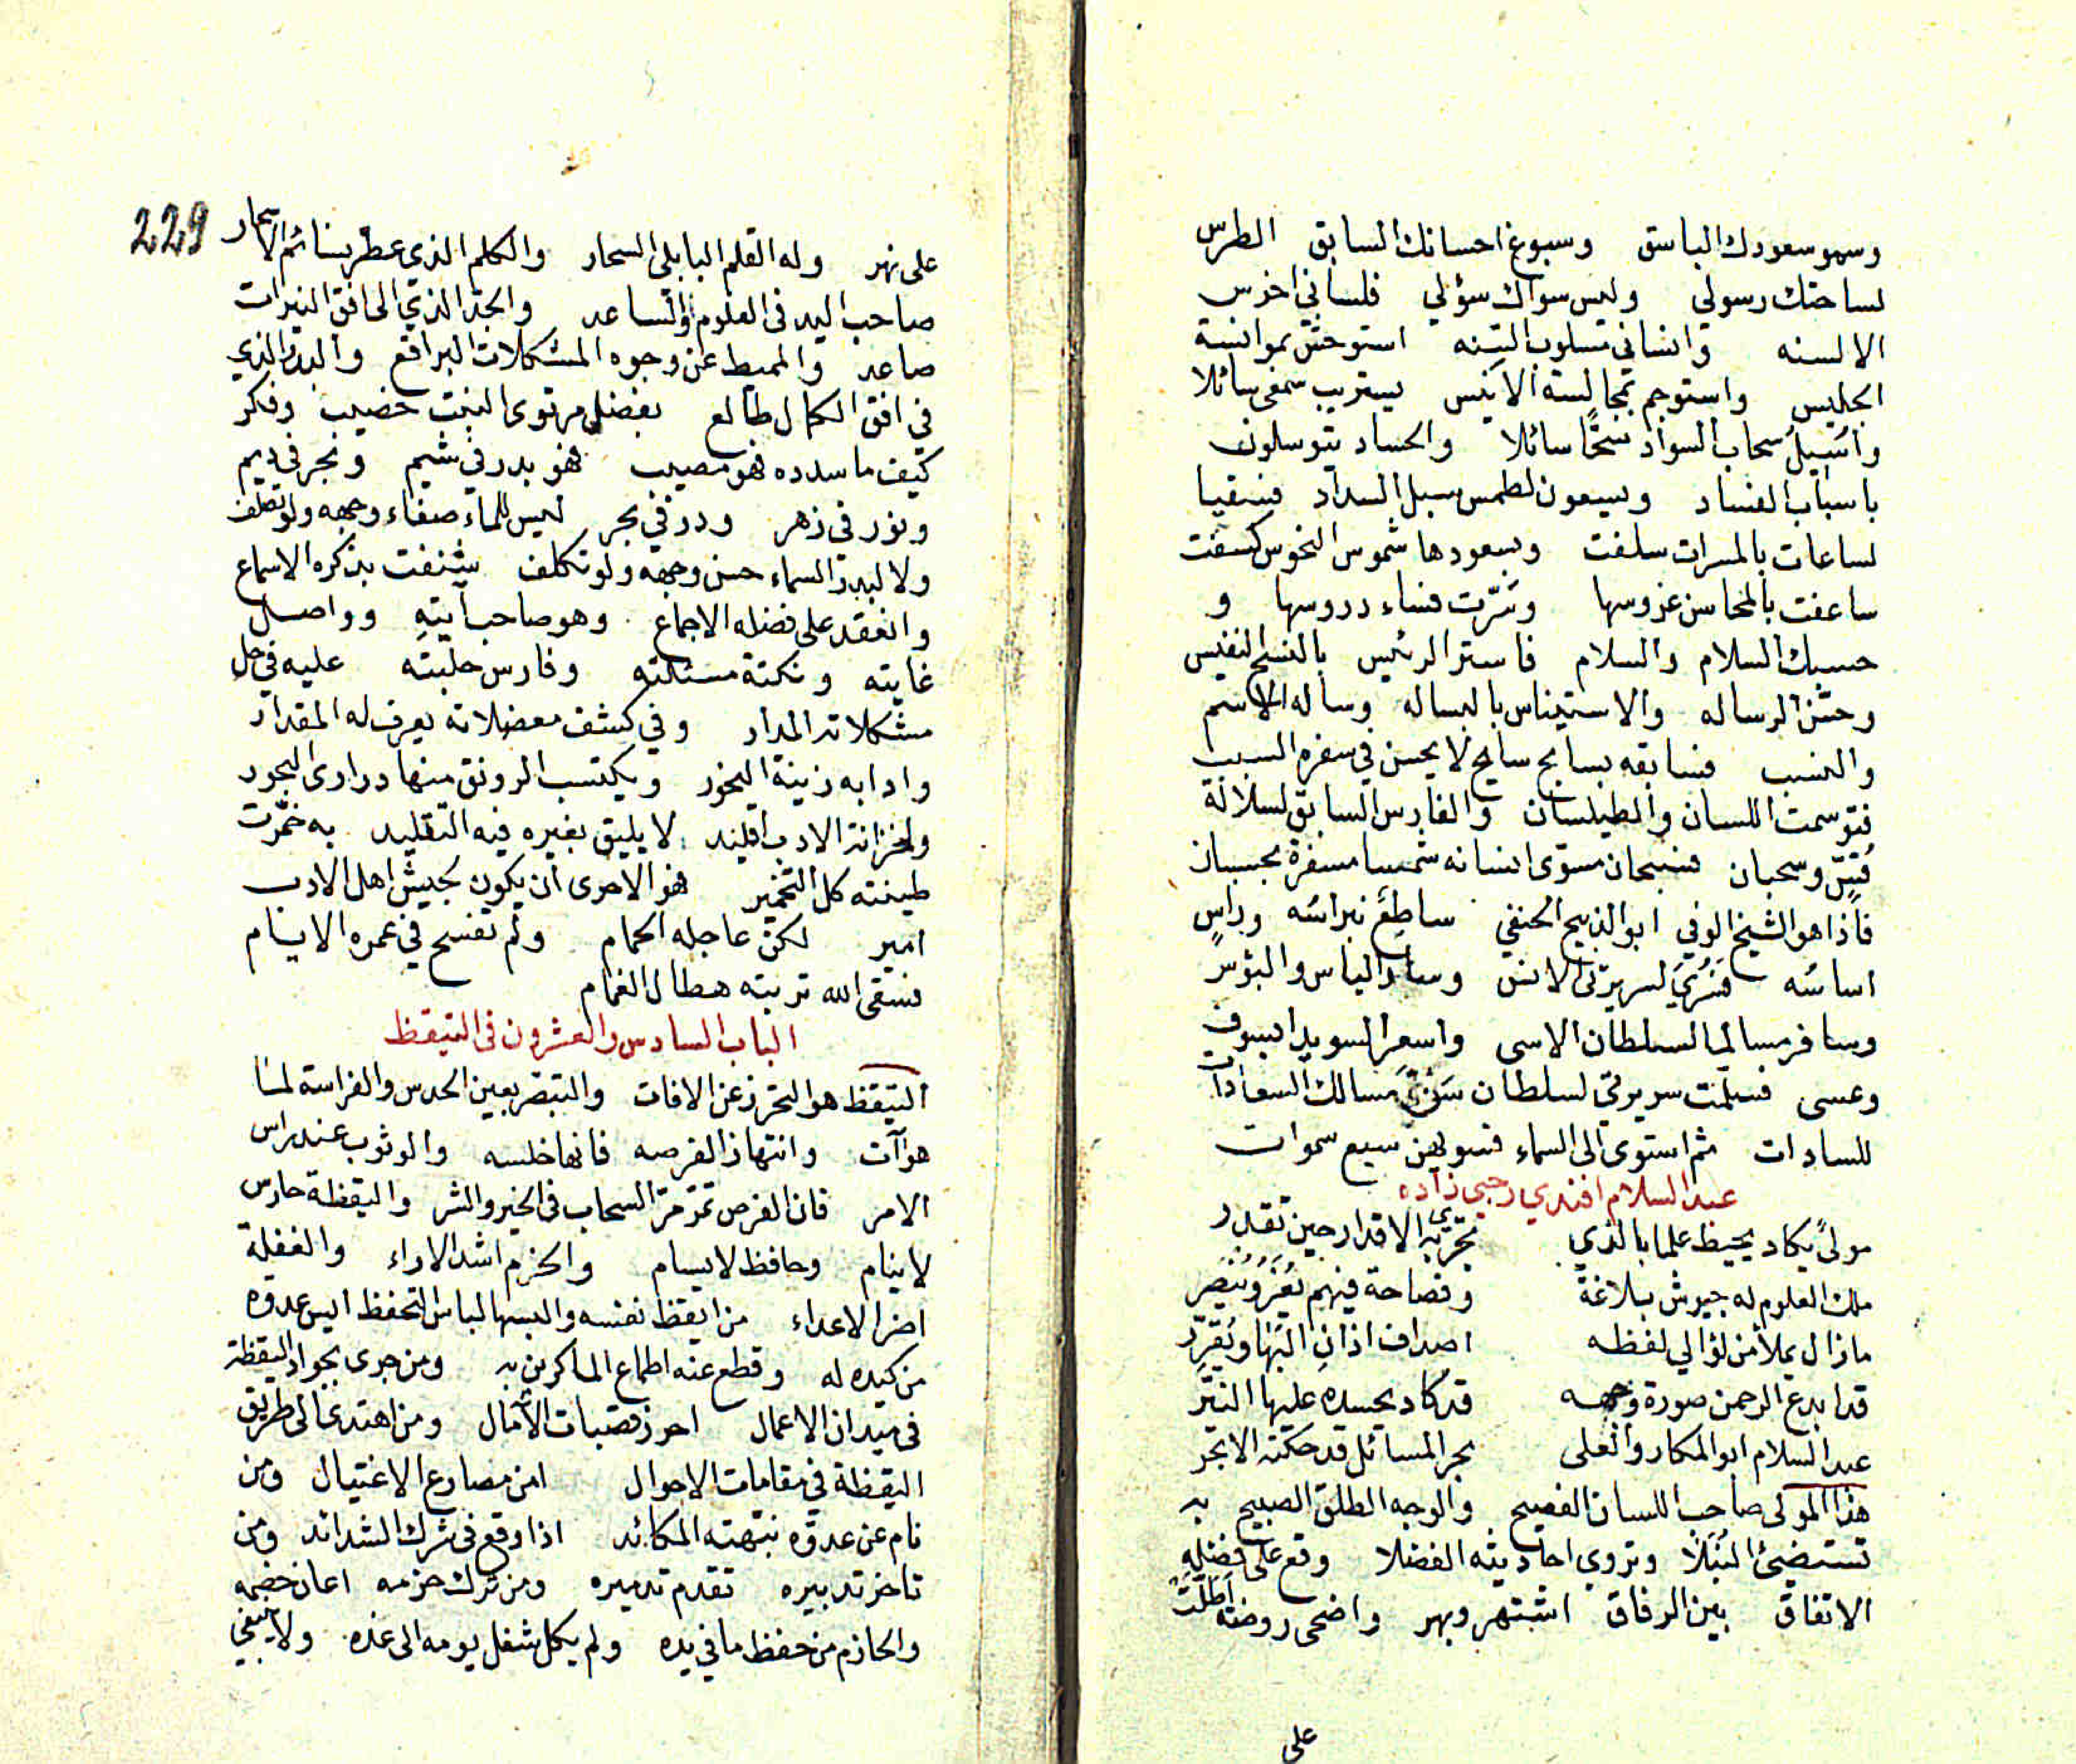 وسمو سعودك الباسق وسبوغ احسانك السابق الطرس
لساحتك رسولي وليس سواك سؤلي فلساني اخرس
الالسنه وانساني مسلوب السنه استوحش بموانسة
الجليس واستوجم بمجالسة الانيس يستريب سمعى سائلا
واسيل سحاب السواد سحا سائلا والحساد يتوسلون
باسباب الفساد ويسعون لطمس سبل السداد فسقيا
لساعات بالمسرات سلفت وبسعودها شموس النحوس كسفت
ساعفت بالمحاسن عروسها وسرت مساء دروسها و
حسبك السلام والسلام فاستر الرئيس بالنسج النفيس
وحسن الرساله والاستيناس بالبساله وساله الاسم
والنسب فسابقه بسابح سابح لا يحسن في سفره السبب
فتوسمت اللسان والطيلسان والفارس السابق لسلالة
قس وسحبان فسبحان مسوى انسانه شمسا مسفرة بحسبان
فاذا هو الشيخ الوفي ابو الذبيح الحنفي ساطع نبراسه وراس
اساسه فسرى لسريرتى الانس وسار الياس والبؤس
وسافر مسالما لسلطان الاسى واسعر السويدا بسوف
وعسى فسلمت سريرتي لسلطان سن مسالك السعادات
للسادات ثم استوى الى السماء فسويهن سبع سموات
عبد السلام افندي رحبى زاده
مولى يكاد يحيط علما بالذي تجري به الاقدار حين تقدر
ملك العلوم له جيوش بلاغة وفصاحة فيهم يعز وينصر
ما زال يملأ من لؤالي لفظه اصداف اذان النهى ويقرر
قد ابدع الرحمن صورة وجهه قد كاد يحسده عليها النير
عبد السلام ابو المكارم والعلى بحر المسائل قد حكته الابحر
هذا المولى صاحب اللسان الفصيح والوجه الطلق الصبيح به
تستضئ النبلا وتروي احاديثه الفضلا وقع على فضله
الاتفاق بين الرفاق اشتهر وبهر واضحى روضة اطلت
على
229
على نهر وله القلم البابلى السحار والكلم الذي عطر بنسائم الاسحار
صاحب اليد فى العلوم والساعد والجد الذي الى افق النيرات
صاعد والمميط عن وجوه المشكلات البراقع والبدر الذي
في افق الكمال طالع بفضله مرتوى النبت خضيب وفكر
كيف ما سدده فهو مصيب فهو بدر في شيم وبحر في ديم
ونور في زهر ودر في بحر ليس للماء صفاء وجهه ولو تطلف
ولا لبدر السماء حسن وجهه ولو تكلف شنفت بذكره الاسماع
وانعقد على فضله الاجماع وهو صاحب آيته وواصل
غايته ونكتة مسئلته وفارس حلبته عليه في حل
مشكلاته المدار وفي كشف معضلاته يعرف له المقدار
وادابه زينة النحور ويكتسب الرونق منها درارى البحور
ولخزانة الادب اقليد لا يليق بغيره فيه التقليد به خمرت
طينته كل التخمير فهو الاحرى ان يكون لجيش اهل الادب
امير لكن عاجله الحمام ولم تفسح في عمره الايام
فسقى الله تربته هطال الغمام
الباب السادس والعشرون فى التيقظ
التيقظ هو التحرز عن الافات والتبصر بعين الحدس والفراسة لما
هو آت وانتهاز الفرصه فانها خلسه والوثوب عند راس
الامر فان الفرص تمر مر السحاب فى الخير والشر واليقظة حارس
لا ينام وحافظ لا يسام والحزم اشد الاراء والغفلة
اضر الاعداء من ايقظ نفسه والبسها لباس التحفظ ايس عدوه
من كيده له وقطع عنه اطماع الماكرين به ومن جرى بجواد اليقظة
فى ميدان الاعمال احرز قصبات الآمال ومن اهتدى الى طريق
اليقظة في مقامات الاحوال امن مصارع الاغتيال ومن
نام عن عدوه نبهته المكائد اذا وقع فى شرك الشدائد ومن
تاخر تدبيره تقدم تدميره ومن ترك حزمه اعان خصمه
والحازم من حفظ ما في يده ولم يكل شغل يومه الى غده ولا ينبغي